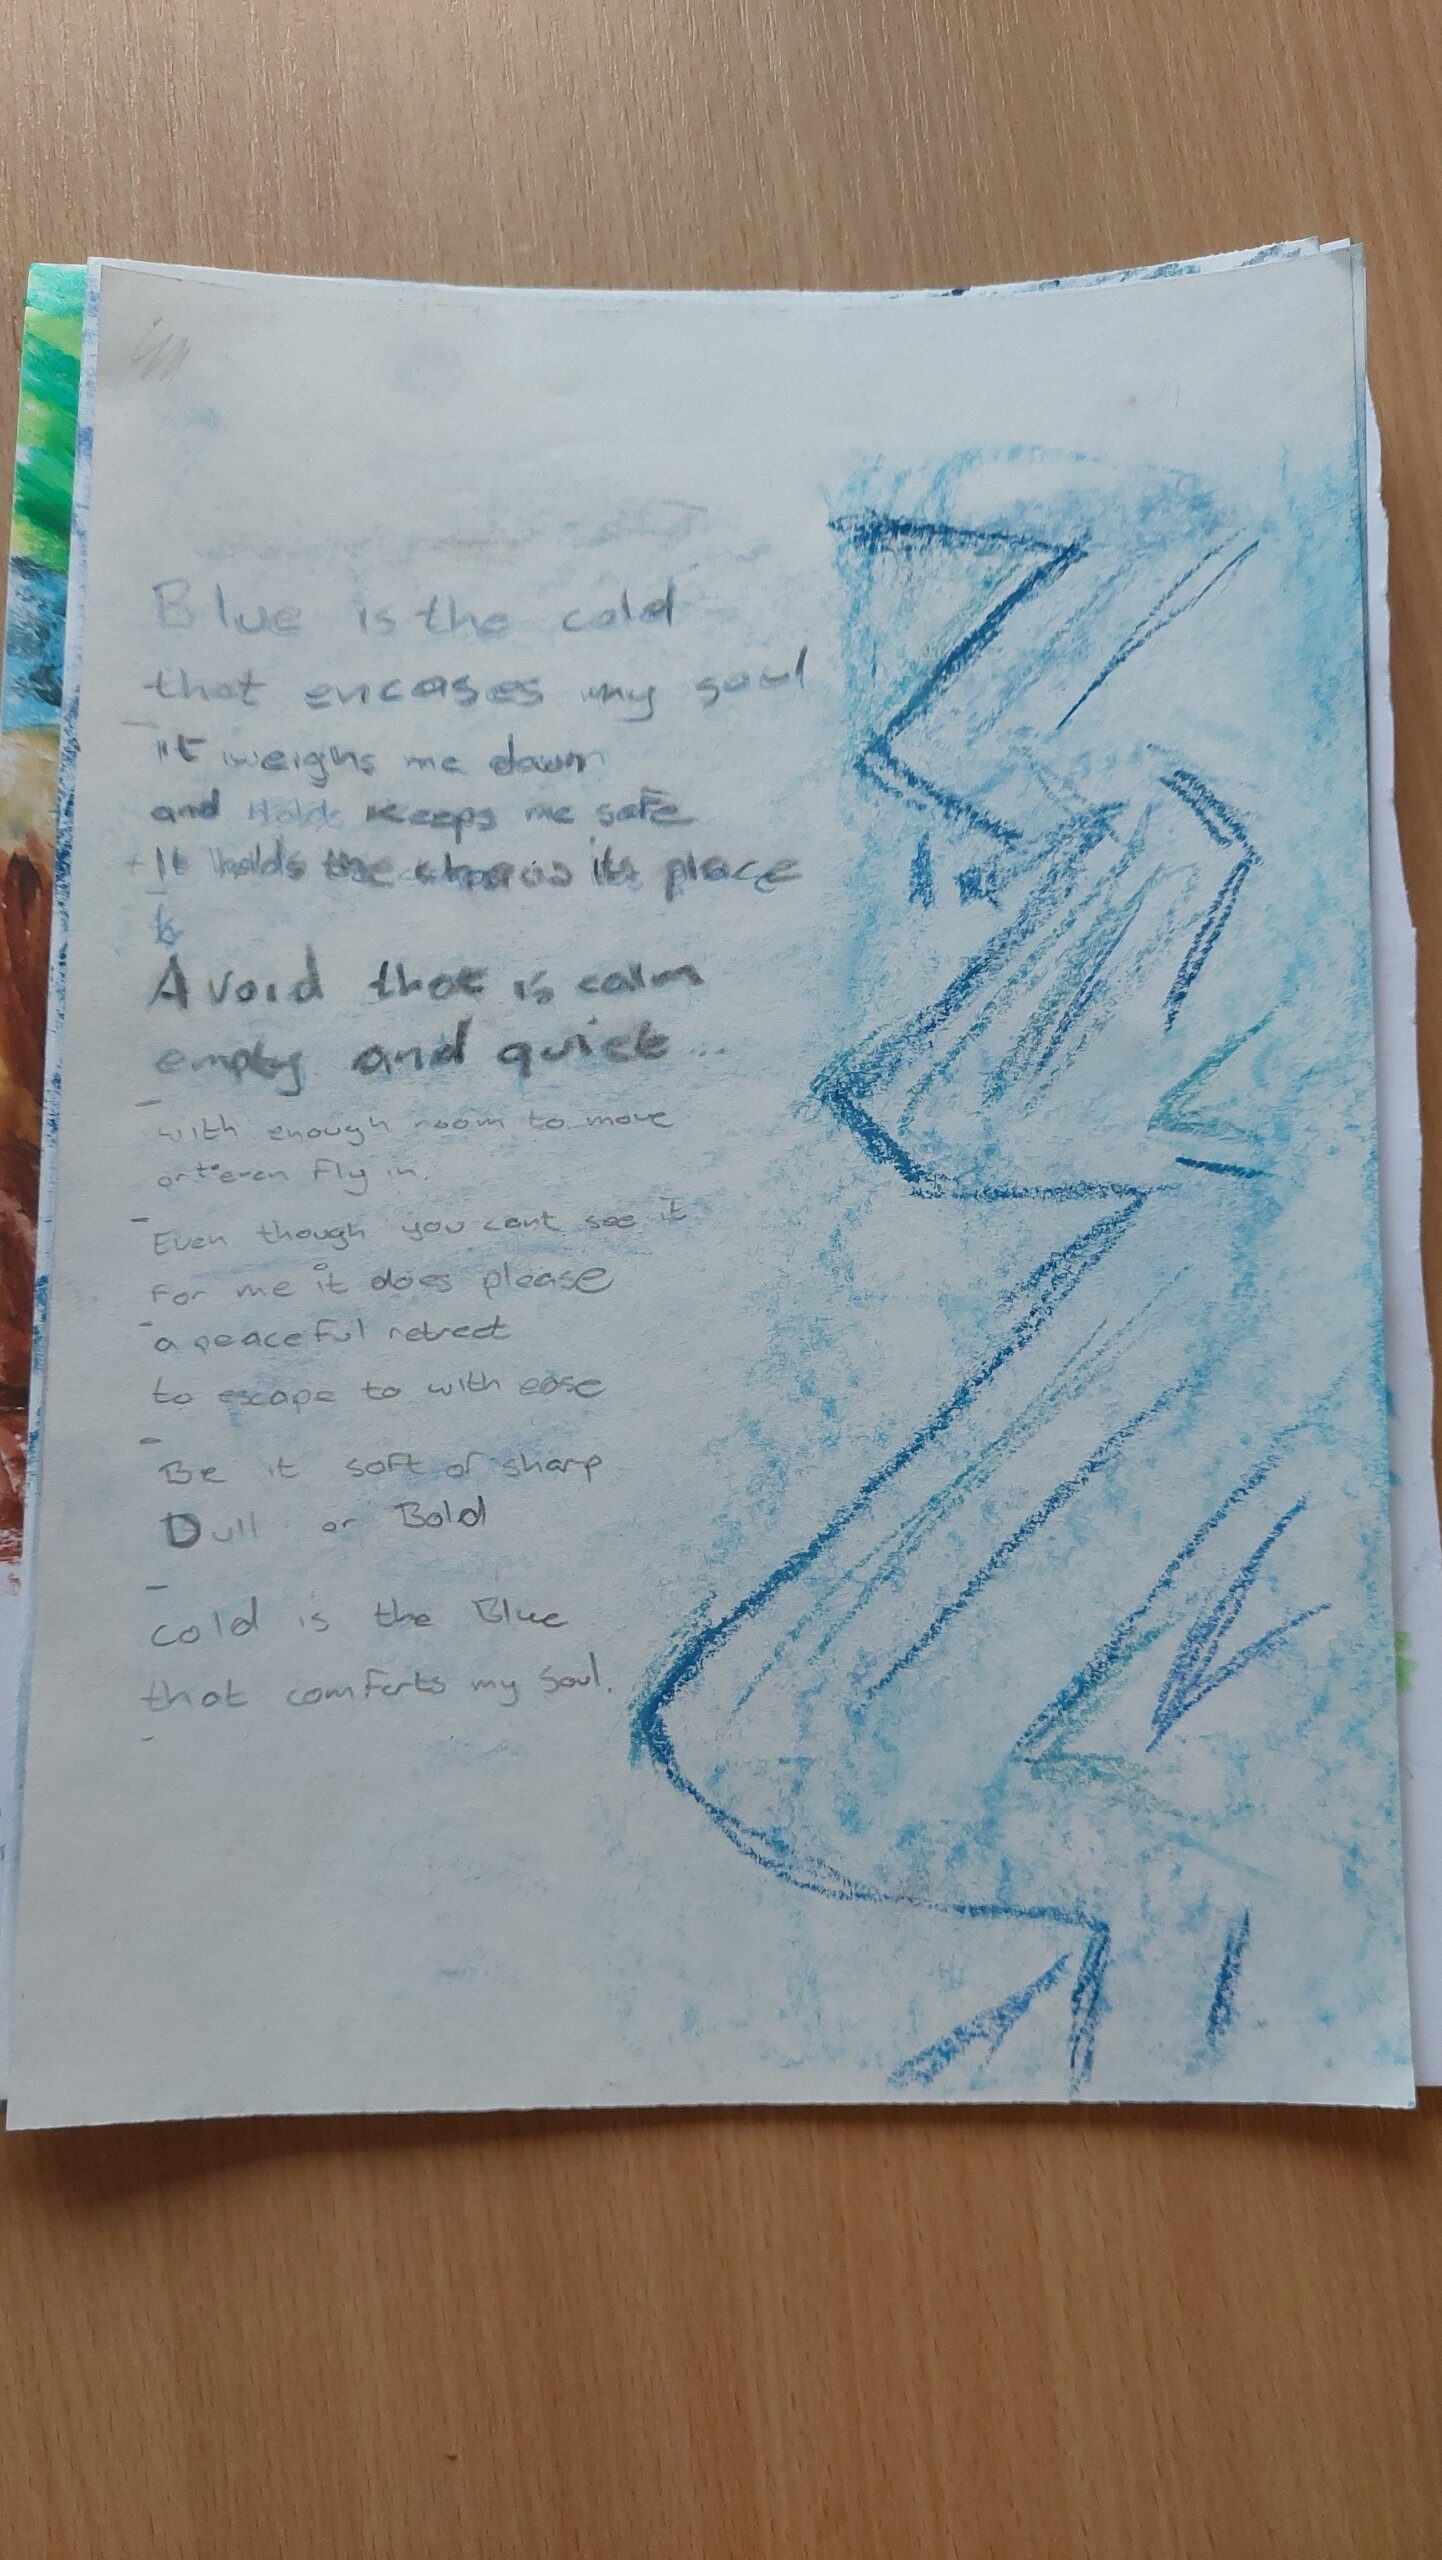 Blue is the cold
that encases my soul
it weighs me down
and Holds keeps me safe
It holds the chaos in its place
A void that is calm
empty and quiet...
with enough room to move
or even fly in.
Even though you cant see it
For me it does please
a peaceful retreat
to escape to with ease
Be it soft or sharp
Dull or Bold
cold is the Blue
that comforts my soul.